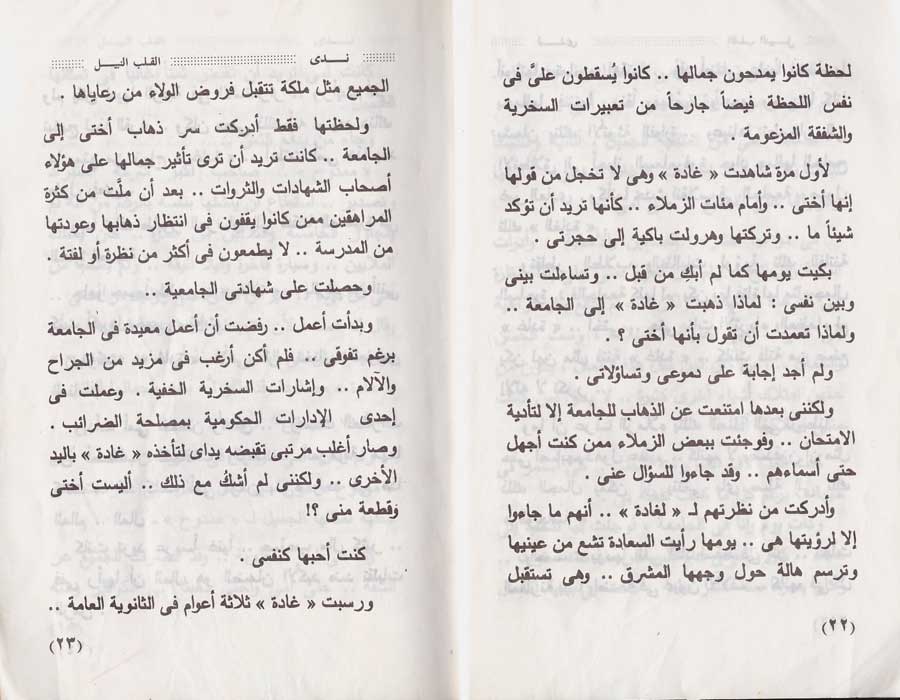 لحظة كانوا يمدحون جمالها .. كانوا يُسقطون علىَّ فى
نفس اللحظة فيضاً جارحاً من تعبيرات السخرية
والشفقة المزعومة .
لأول مرة شاهدت « غادة » وهى لا تخجل من قولها
إنها أختى .. وأمام مئات الزملاء .. كأنها تريد أن تؤكد
شيئاً ما .. وتركتها وهرولت باكية إلى حجرتى .
بكيت يومها كما لم أبكِ من قبل .. وتساءلت بينى
وبين نفسى : لماذا ذهبت « غادة » إلى الجامعة ..
ولماذا تعمدت أن تقول بأنها أختى ؟ .
ولم أجد إجابة على دموعى وتساؤلاتى .
ولكننى بعدها امتنعت عن الذهاب للجامعة إلا لتأدية
الامتحان .. وفوجئت ببعض الزملاء ممن كنت أجهل
حتى أسماءهم .. وقد جاءوا للسؤال عنى .
وأدركت من نظرتهم لـ « لغادة » .. أنهم ما جاءوا
إلا لرؤيتها هى .. يومها رأيت السعادة تشع من عينيها
وترسم هالة حول وجهها المشرق .. وهى تستقبل
(٢٢)
ندى
القلب النيل
الجميع مثل ملكة تتقبل فروض الولاء من رعاياها .
ولحظتها فقط أدركت سر ذهاب أختى إلى
الجامعة .. كانت تريد أن ترى تأثير جمالها على هؤلاء
أصحاب الشهادات والثروات .. بعد أن ملّت من كثرة
المراهقين ممن كانوا يقفون فى انتظار ذهابها وعودتها
من المدرسة .. لا يطمعون فى أكثر من نظرة أو لفتة .
وحصلت على شهادتى الجامعية ..
وبدأت أعمل .. رفضت أن أعمل معيدة فى الجامعة
برغم تفوقى .. فلم أكن أرغب فى مزيد من الجراح
والآلام .. وإشارات السخرية الخفية . وعملت فى
إحدى الإدارات الحكومية بمصلحة الضرائب .
وصار أغلب مرتبى تقبضه يداى لتأخذه « غادة » باليد
الأخرى .. ولكننى لم أشكُ مع ذلك .. أليست أختى
وقطعة منى ؟!
كنت أحبها كنفسى .
ورسبت « غادة » ثلاثة أعوام فى الثانوية العامة ..
(٢٣)